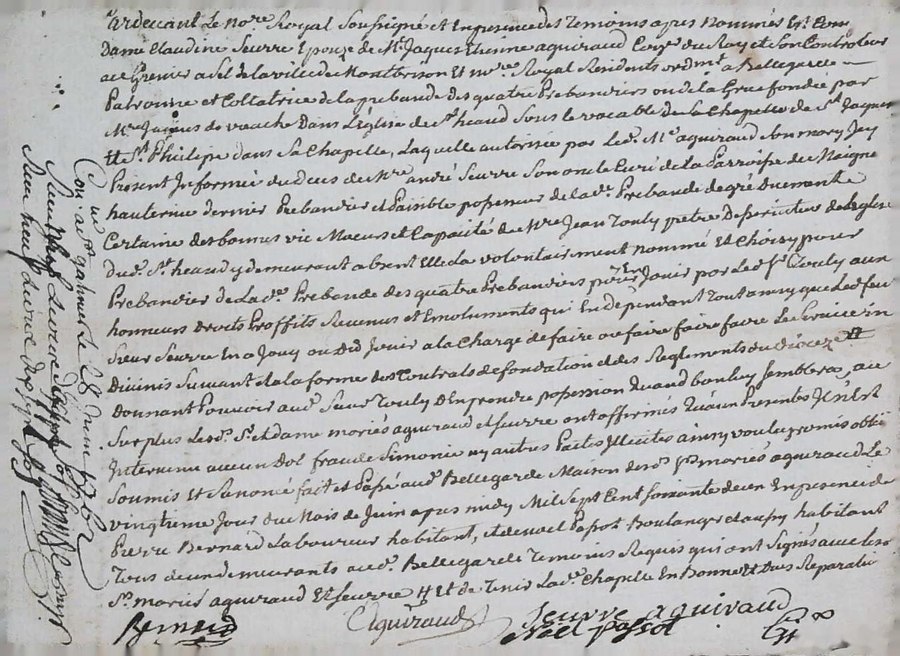 Pardevant Le No.re Royal Soussigné et En presence des Temoins apres Nommés Est Com
Dame Claudine Seurre Epouze de M.e Jaques Etienne aguiraud Con.er du Roy et Son Controleur
au Grenier a Sel de la ville de Montbrison Et No.re Royal Residents ord.mt a Bellegarde
Patronne et Coltatrice de la prebande des quatre Prebandiers ou de la Grue fondée par
M.re Jaques de vauche Dans L'Eglise de S.t heaud Sous le vocable de la Chapelle de S.t Jaques
Et S.t Philipe dans Sa Chapelle, Laquelle autorisée par Led. M.e aguiraud Son mary Icy
Present Informée du deces de M.re andré Seurre Son oncle Curé de la Parroisse de
hauterive dernier Prebandier et Paisible possesseur de lad.e Prebande de gré Duement
Certaine des bonnes vie Moeurs et Capacité de M.re Jean Touly pretre Desserviteur de L'eglise
dud. S.t heaud y demeurant absent Elle la volontairement Nommé Et Choisy pour
Prebandier de Lad.e Prebande des quatre Prebandiers pour En Jouir par Led. S.r Touly aux
honneurs Droits Proffits Revenus et Emoluments qui En dependent Tout ainsy que Led. feu
Sieur Seurre En a Jouy ou Dub Jouir a la Charge de faire ou faire faire Le Service in
Divinis Suivant et a la forme des Contrats de fondation et des Reglements du Dioceze #
Donnant Pouvoir aud. Sieur Touly D'En prendre possession Quand bon luy Semblera, au
Surplus Lesd. S.r et dame mariés aguiraud et Seurre ont affirmés Qu'aux Presentes Il N'Est
Intervenu aucun Dol fraude Simonie ny autres Pactes Illicites ainsy voulu promis obligé
Soumis Et Renoncé fait et Passé aud. Bellegarde Maison desd. S.rs mariés aguiraud Le
vingtieme Jour du Mois de Juin apres midy Mil Sept Cent Soixante deux En presence de
Pierre Bernard Laboureur habitant, et de noel Passot Boulanger et aussy habitant
Tous deux demeurants aud. Bellegarde Temoins Requis qui ont Signés avec lesd.
S.rs mariés aguiraud Et Seurre # Et de Tenir Lad.e Chapelle En Bonne Et Dues Reparatio
Bernard Aguiraud Seurre aguiraud
Noel Passot